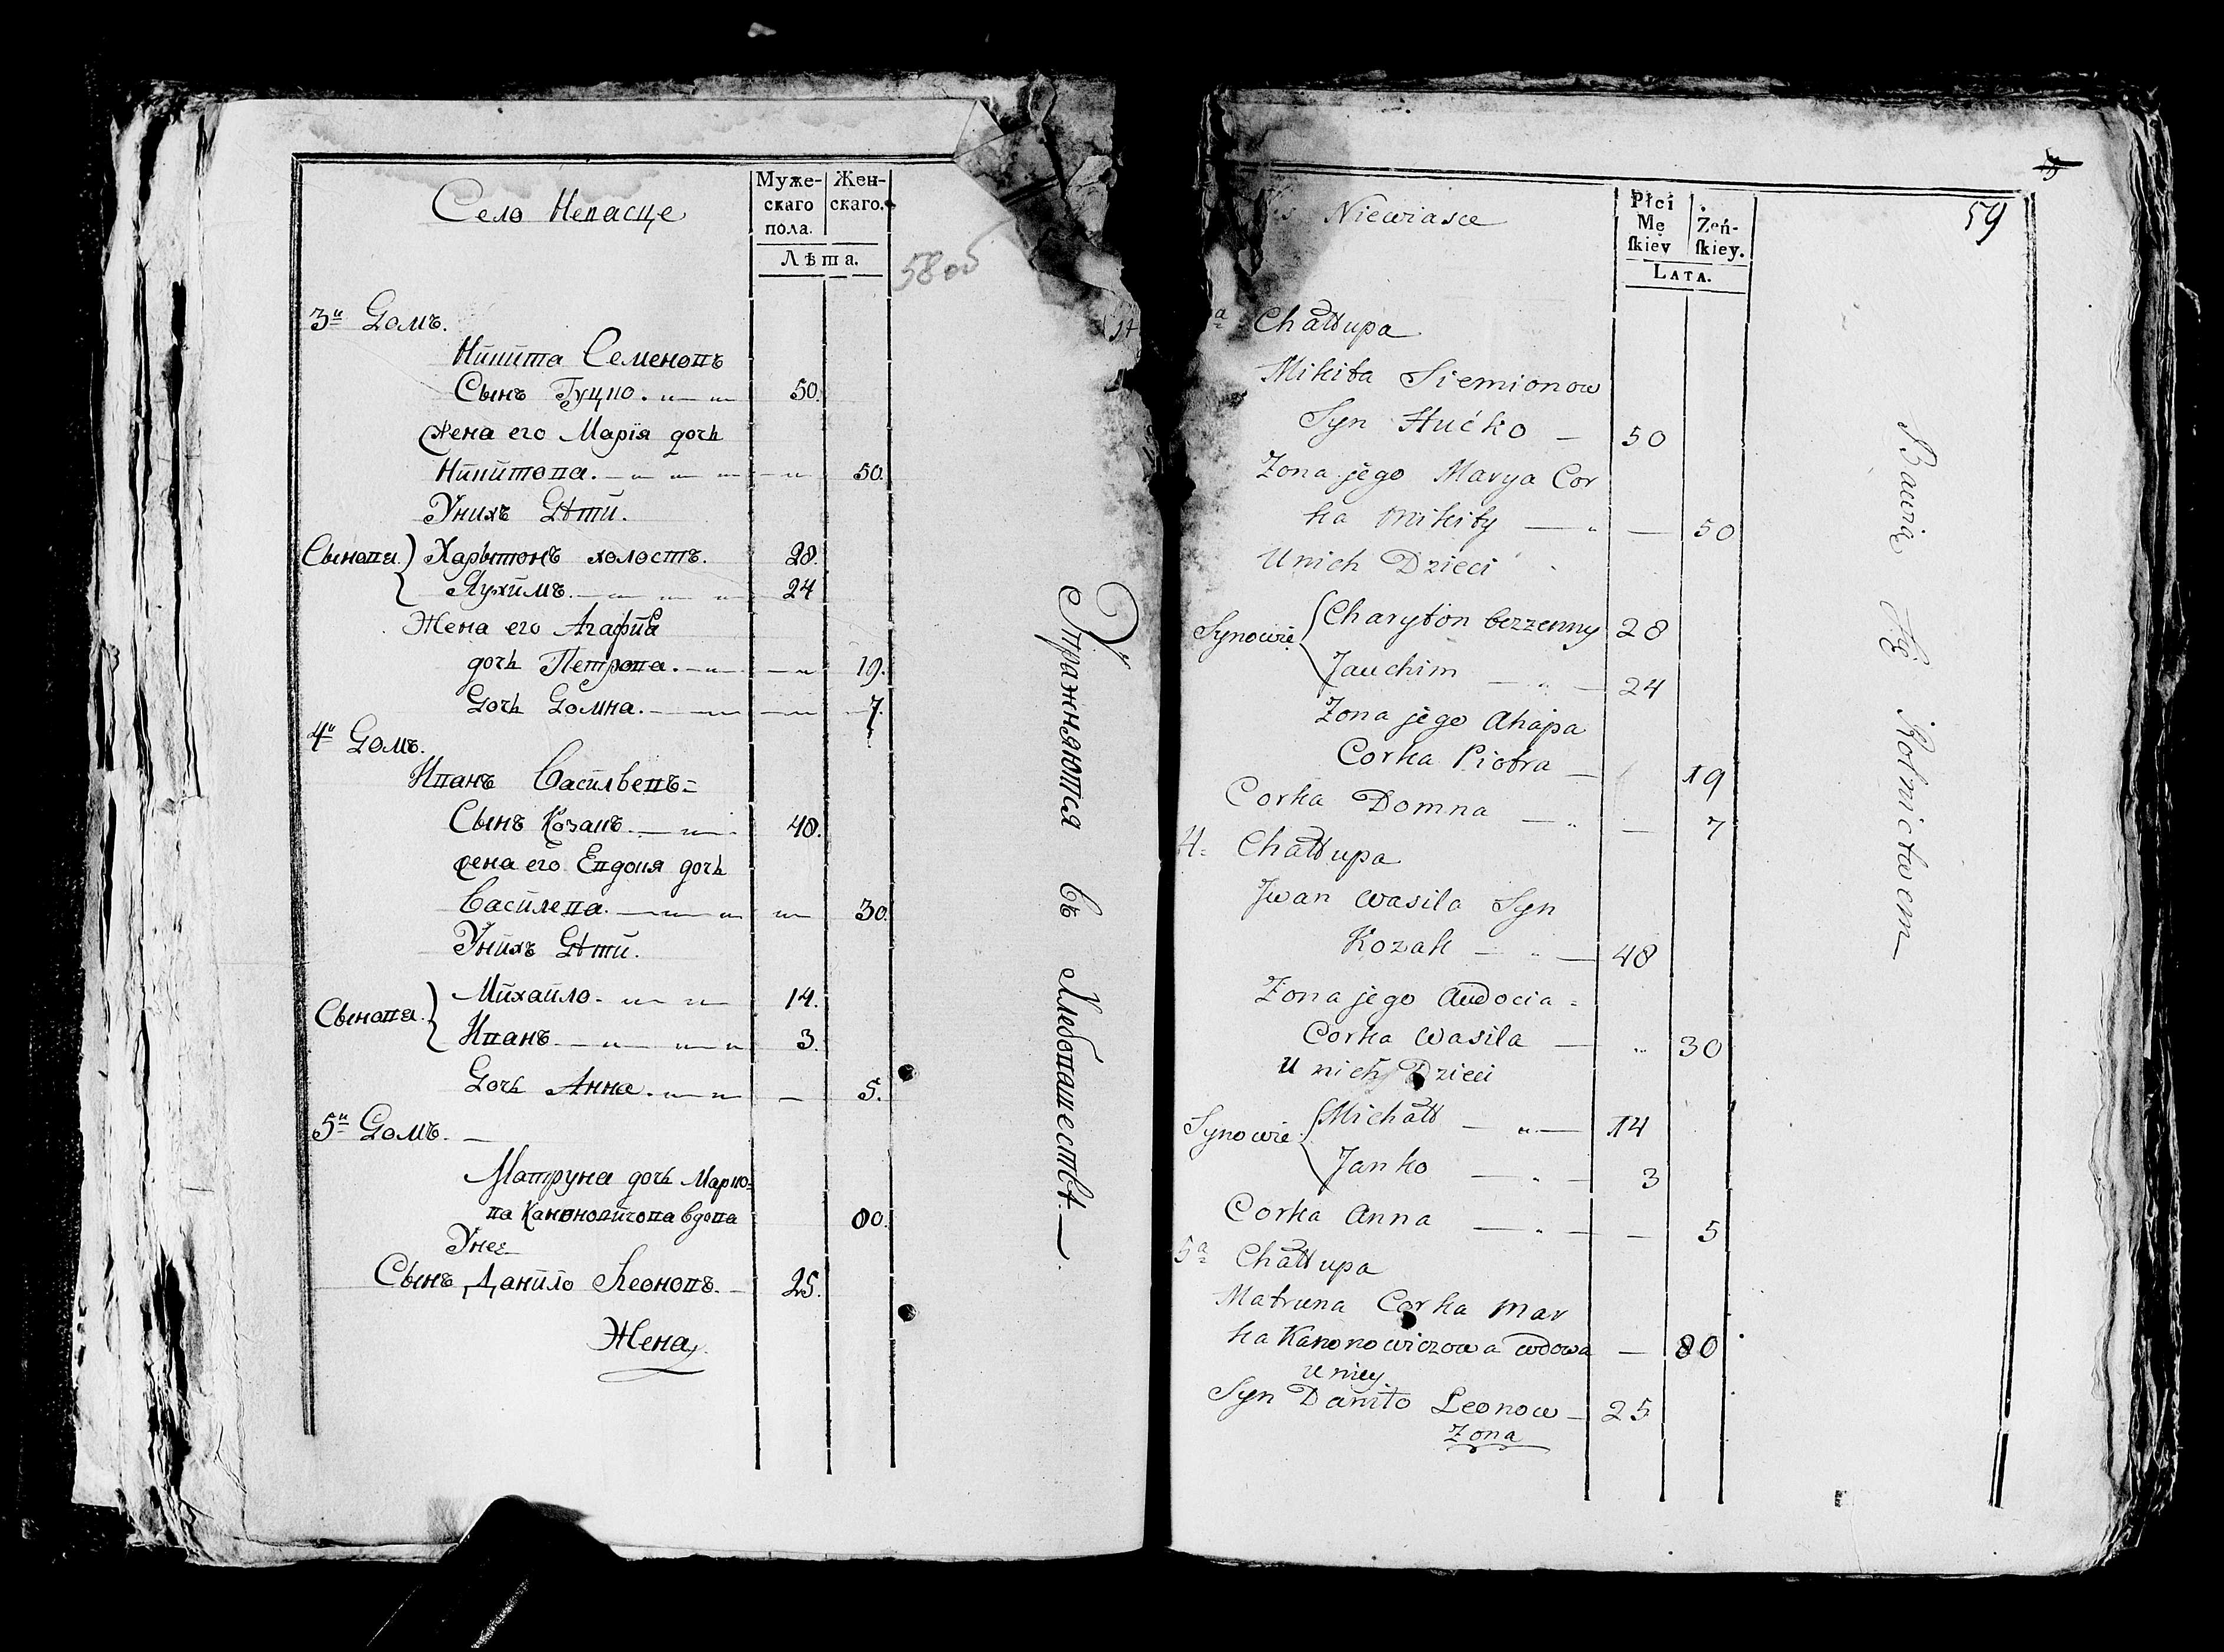 Село Невасце
Муже-
скаго
пола.
Жен-
скаго.
Лѣта.
58 об
3й Домъ.
Никита Семеновъ
Сынъ Гуцко. 50.
Жена его Марїя дочь
Никитова. 50.
Унихъ Дѣти.
Сыновя. Харытонъ холостъ. 28.
Яухимъ. 24
Жена его Агафия
дочь Петрова. 19.
Дочь Домна. 7.
4й Домъ.
Иванъ Васильевъ=
Сынъ Козакъ. 48.
Жена его Евдокя дочь
Василева. 30.
Унихъ Дѣти.
Сыновя. Михайло. 14.
Иванъ. 3.
Дочь Анна. 5.
5й Домъ.
Матруна дочь Марко=
ва Каноновичова вдова 80.
Унее
Сынъ Данило Леоновъ. 25.
Жена
Упражняются въ Хлебопашествѣ.
Niewiasce
Płci
Mę
ſkiey
Żeń-
ſkiey.
LATA.
59
a Chałłupa
Mikita Siemionow
Syn Hućko 50
Zona jego Marya Cor
ka Mikity 50
Unich Dzieci
Synowie Charyton bezzenny 28
Jauchim 24
Zona jego Ahapa
Corka Piotra 19
Corka Domna 7
4. Chałłupa
Jwan Wasila Syn
Kozak 48
Zona jego Audocia =
Corka Wasila 30
U nich Dzieci
Synowie Michałł 14
Janko 3
Corka Anna 5
5a Chałłupa
Matruna Corka Mar
ka Kanonowiczowa wdowa 80
U niey
Syn Daniło Leonow 25
Zona
Bawią Się Rolnictwem